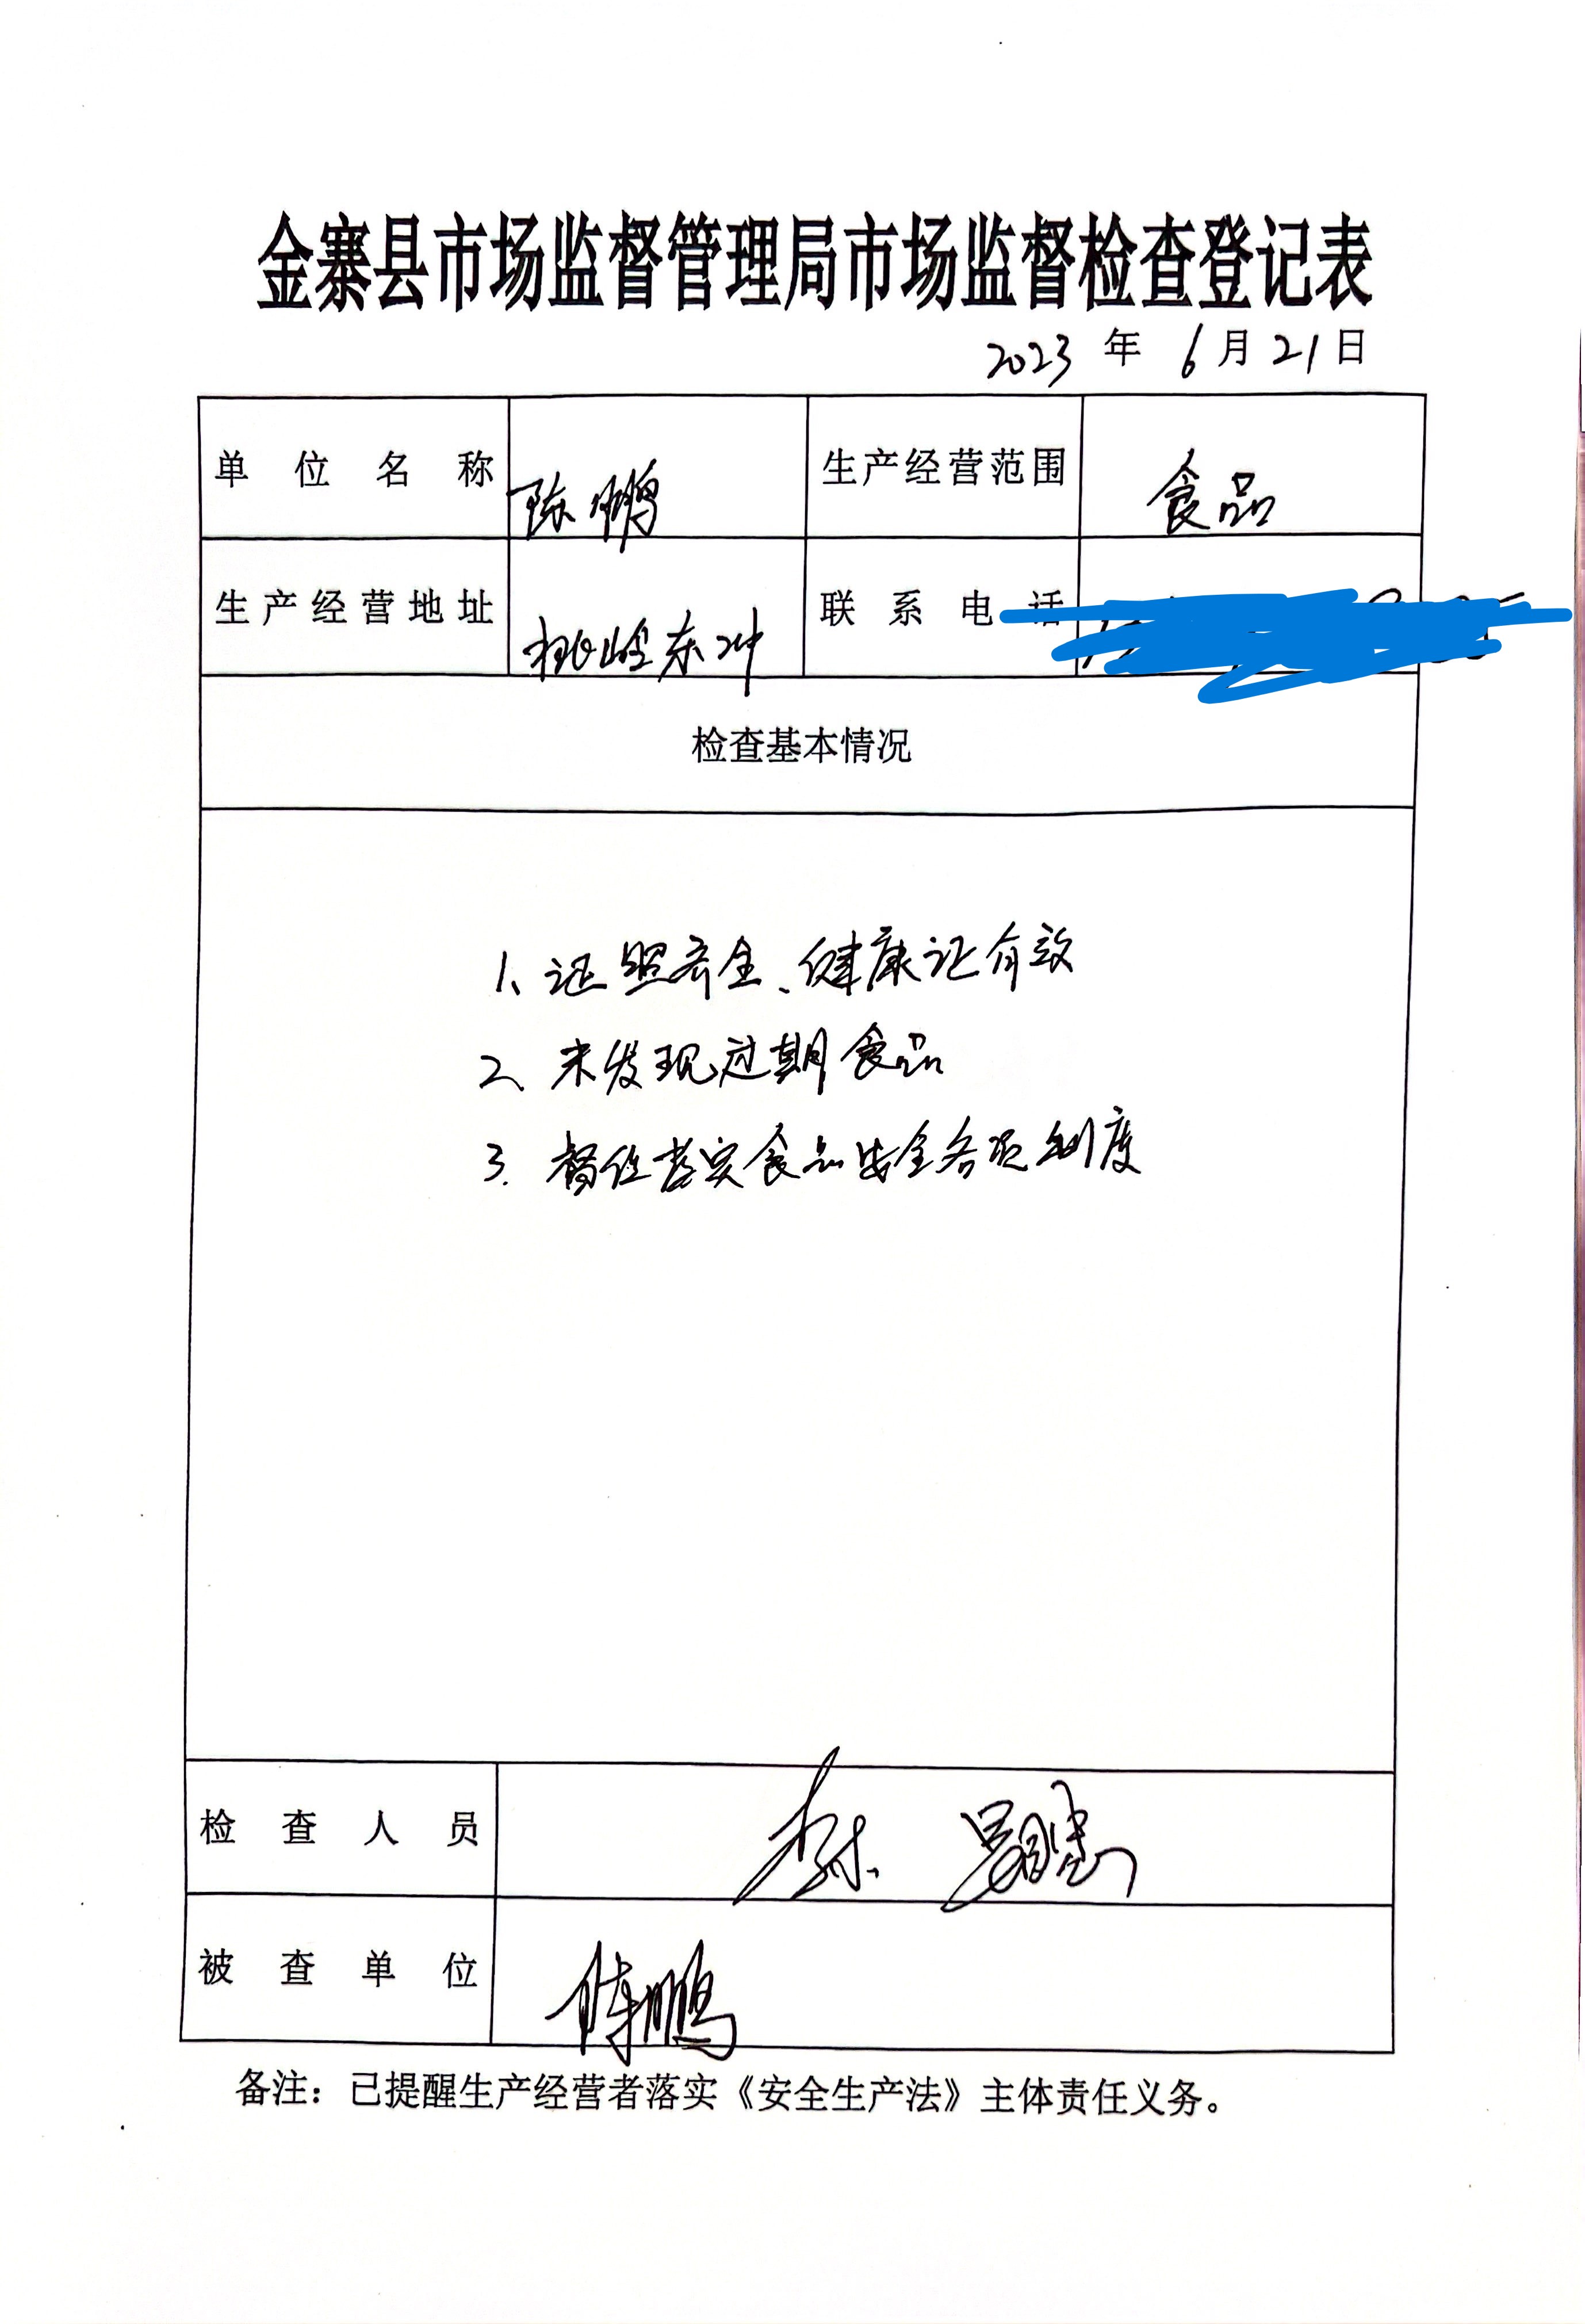 金寨县市场监督管理局市场监督检查登记表
2023 年 6 月 21 日
单位名称 陈鹏 生产经营范围 食品
生产经营地址 桃岭东冲 联系电话
检查基本情况
1、证照齐全、健康证有效
2、未发现过期食品
3. 督促落实食品安全各项制度
检查人员
被查单位 陈鹏
备注：已提醒生产经营者落实《安全生产法》主体责任义务。